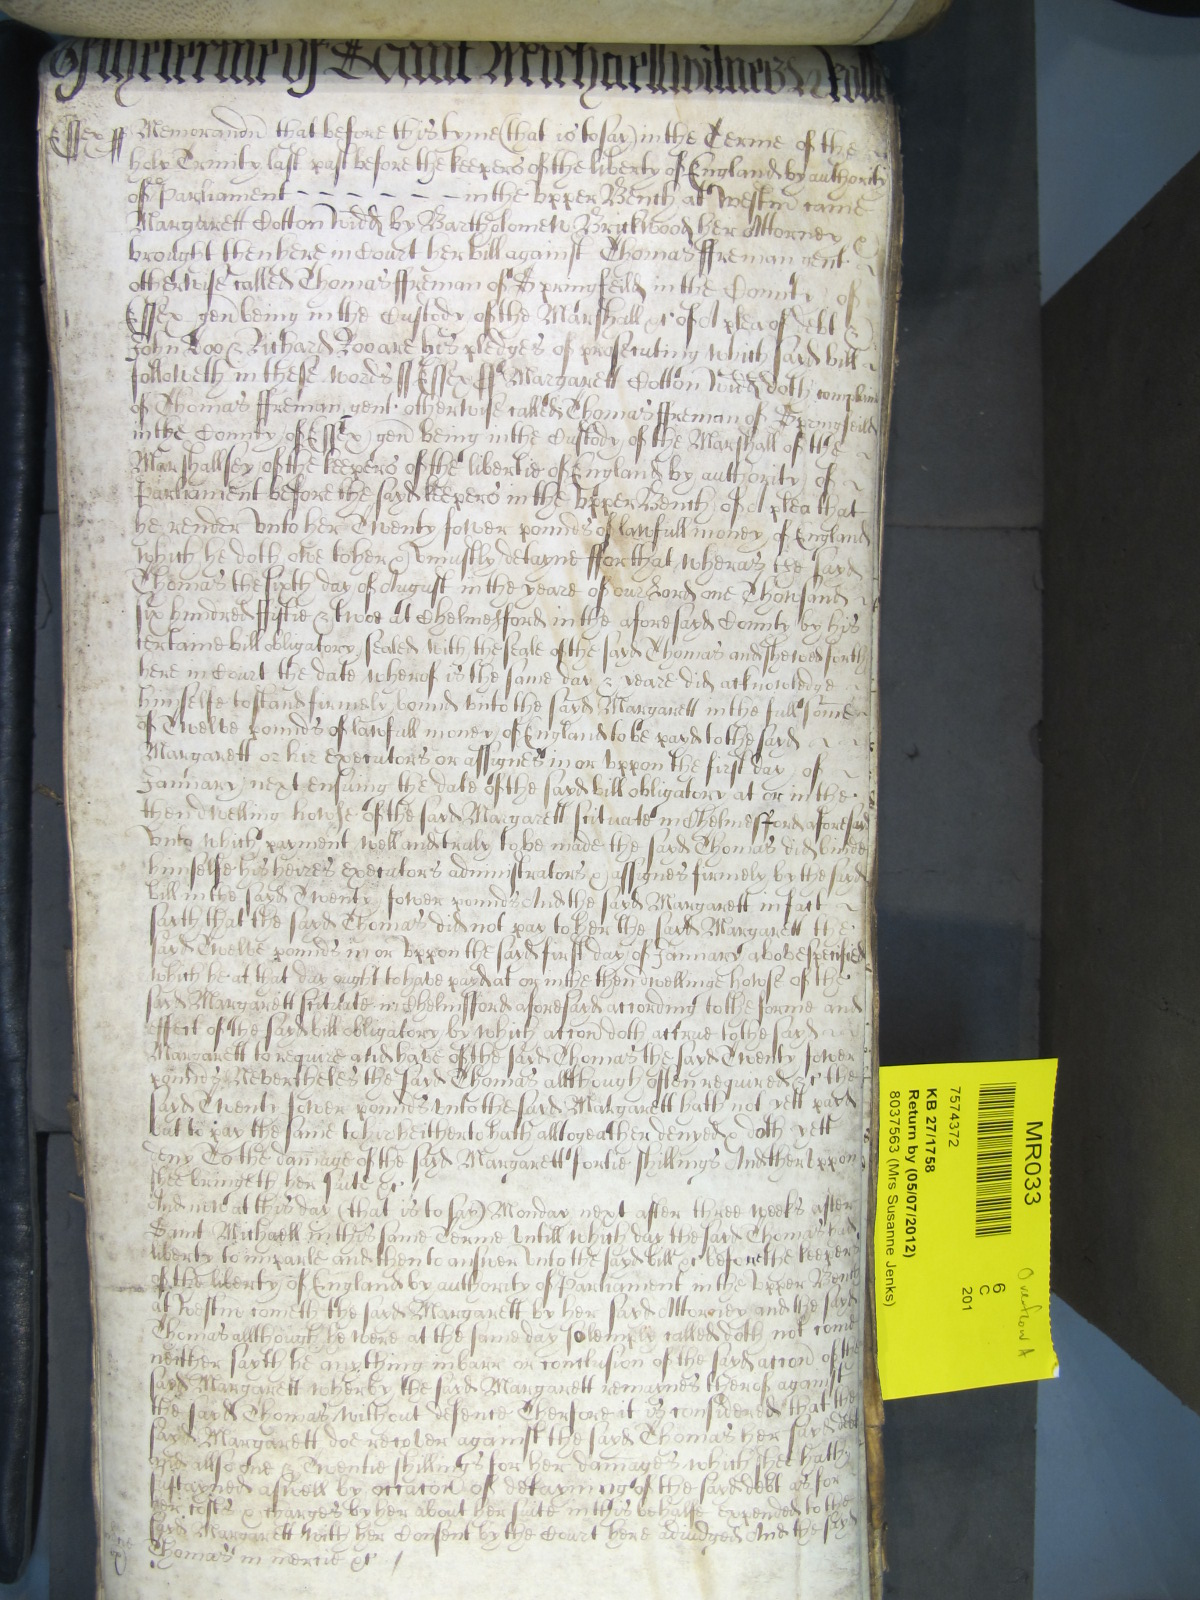 Of the terme of Saint Michaell witnes Rolle
Essex ss Memorandũ that before this tyme (that is to say) in the Terme of the
holy Trinity last past before the keepers of the liberty of England by authority
of Parliament - - - - - - - in the Upper Bench at Westm̃ came
Margarett Cotton widd by Bartholomew Brickwood her Attorney &
brought then here in Court her bill against Thomas ffreman gent
otherwise called Thomas ffreman of Springfeild in the County of
Essex gen̄ being in the Custody of the Marshall &c of A plea of debt &
John Doo & Richard Roo are his pledges of prosecuting which sayd bill
followeth in these words ss Essex ss Margarett Cotton widd doth complaine
of Thomas ffreman gent otherwise called Thomas ffreman of Springfeild
in the County of Essex gen̄ being in the Custody of the Marshall of the
Marshallsey of the keepers of the libertie of England by authority of
Parliament before the sayd keepers in the Upper Bench of A plea that
he render unto her Twenty fower pounds of lawfull money of England
which he doth owe to her & uniustly detayne ffor that wheras the sayd
Thomas the sixth day of August in the yeare of our Lord one Thowsand
six hundred fiftie & twoe at Chelmesford in the aforesayd County by his
certaine bill obligatory sealed with the seale of the sayd Thomas and shewed forth
here in Court the date wherof is the same day & yeare did acknowledge
himselfe to stand firmely bound unto the sayd Margarett in the full some
of Twelve pounds of lawfull money of England to be payd to the sayd
Margarett or her executors or assignes in or uppon the first day of
January next ensuing the date of the sayd bill obligatory at or in the
then dwelling howse of the sayd Margarett scituate in Chelmesford aforesayd
unto which payment well and truly to be made the sayd Thomas did binde
himselfe his heires executors administrators & assignes firmely by the sayd
bill in the sayd Twenty fower pounds And the sayd Margarett in fact
sayth that the sayd Thomas did not pay to her the sayd Margarett the
sayd Twelve pounds in or uppon the sayd first day of January above specified
which he at that day ought to have payd at or in the then dwellinge howse of the
sayd Margarett scituate in Chelmsford aforesayd according to the forme and
effect of the sayd bill obligatory by which accon̄ doth accrue to the sayd
Margarett to require and have of the sayd Thomas the sayd Twenty fower
pounds Nevertheles the sayd Thomas allthough often required &c the
sayd Twenty fower pounds unto the sayd Margarett hath not yett payd
but to pay the same to her heitherto hath alltogeather denyed & doth yett
deny To the dam̃age of the sayd Margarett fortie shillings And theruppon
shee bringeth her suite &c
And now at this day (that is to say) Monday next after three weeks after
Saint Michaell in this same Terme Untill which day the sayd Thomas had
liberty to imparle and then to answer unto the sayd bill &c before the keepers
of the liberty of England by authority of Parliament in the Upper Bench
at Westm̃ cometh the sayd Margarett by her sayd Attorney and the sayd
Thomas allthough he were at the same day solemply called doth not come
neither sayth he any thing in barr or conclusion of the sayd accon̄ of the
sayd Margarett wherby the sayd Margarett remaynes therof against
the sayd Thomas without defence Therfore it is considered that the
sayd Margarett doe recover against the sayd Thomas her sayd debt
and allso one & Twentie shillings for her damages which shee hath
sustayned aswell by occacon̄ of detayning of the sayd debt as for
her costs & charges by her about her suite in this behalfe expended to the
sayd Margarett with her Consent by the Court here Adiudged And the sayd
Thomas in mercie &c
MR033
7574372
KB 27/1758
Return by (05/07/2012)
8037563 (Mrs Susanne Jenks)
6
C
201